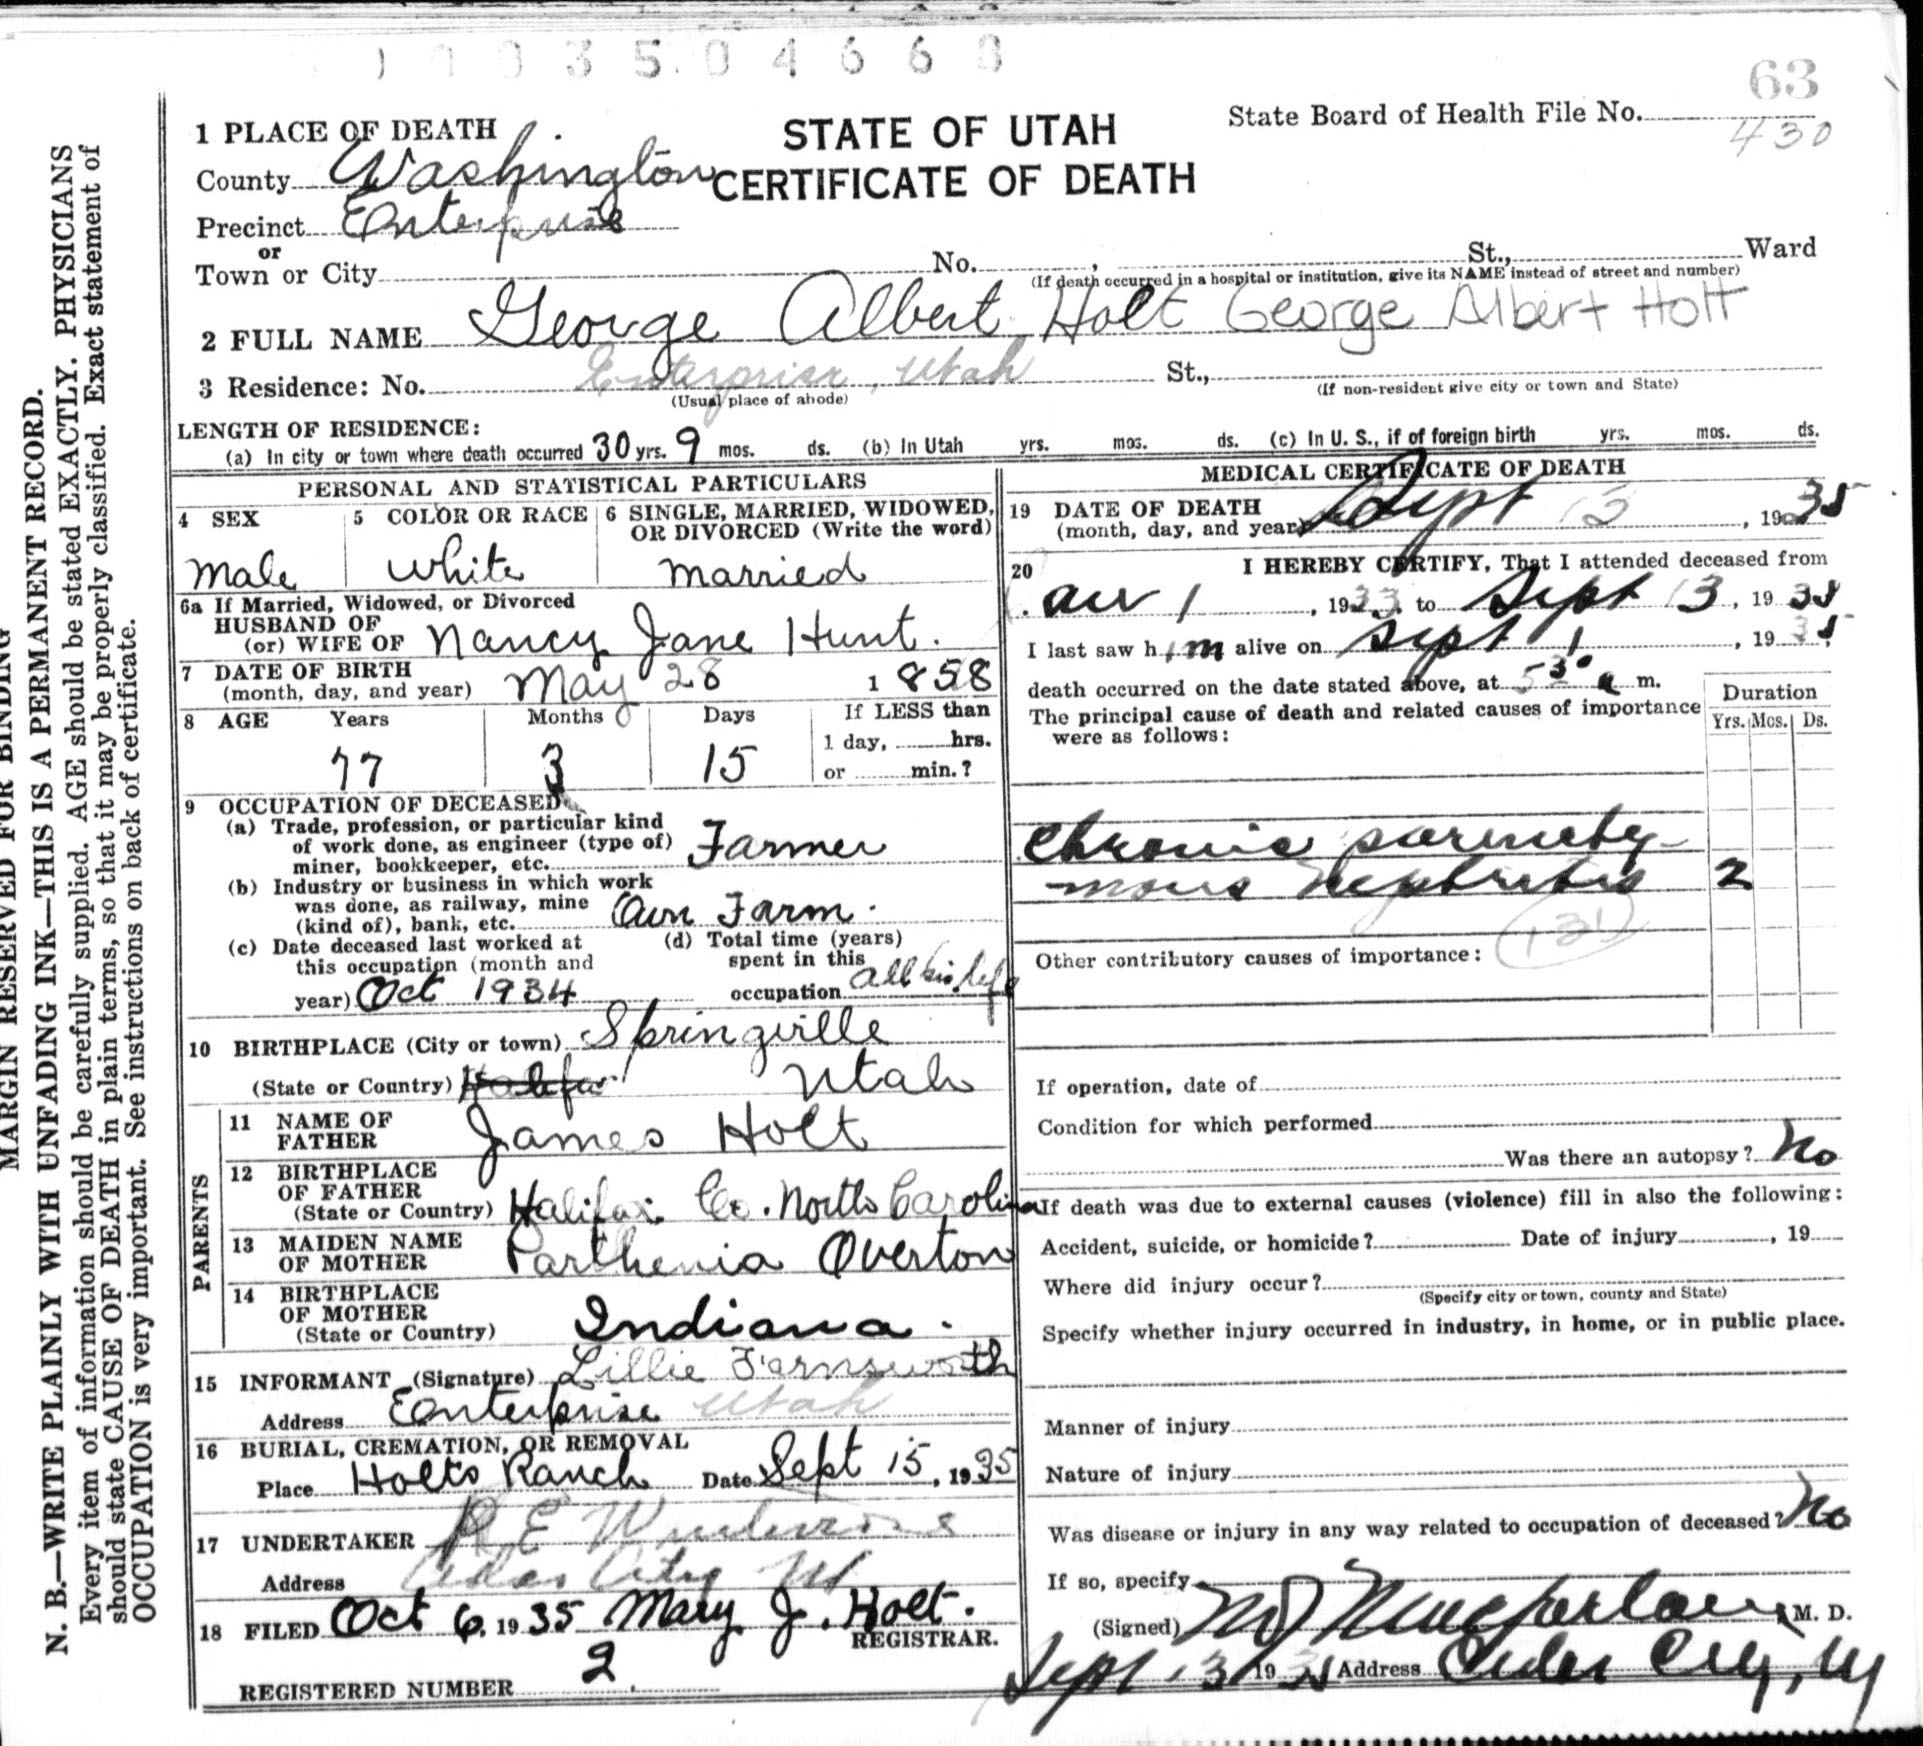 1 9 3 5 0 4 6 6 8
63
State Board of Health File No.
430
1 PLACE OF DEATH
STATE OF UTAH
CERTIFICATE OF DEATH
County Washington
Precinct Enterprise
or
Town or City No. , St., Ward
(If death occurred in a hospital or institution, give its NAME instead of street and number)
2 FULL NAME George Albert Holt George Albert Holt
3 Residence: No. Enterprise, Utah St.,
(Usual place of abode) (If non-resident give city or town and State)
LENGTH OF RESIDENCE:
(a) In city or town where death occurred 30 yrs. 9 mos. ds. (b) In Utah yrs. mos. ds. (c) In U. S., if of foreign birth yrs. mos. ds.
PERSONAL AND STATISTICAL PARTICULARS
4 SEX 5 COLOR OR RACE 6 SINGLE, MARRIED, WIDOWED,
OR DIVORCED (Write the word)
Male White Married
6a If Married, Widowed, or Divorced
HUSBAND OF
(or) WIFE OF Nancy Jane Hunt.
7 DATE OF BIRTH
(month, day, and year) May 28 1858
8 AGE Years Months Days If LESS than
1 day, hrs.
77 3 15 or min.?
9 OCCUPATION OF DECEASED
(a) Trade, profession, or particular kind
of work done, as engineer (type of)
miner, bookkeeper, etc. Farmer
(b) Industry or business in which work
was done, as railway, mine
(kind of), bank, etc. Own Farm.
(c) Date deceased last worked at
this occupation (month and
year) Oct 1934
(d) Total time (years)
spent in this
occupation all his life
10 BIRTHPLACE (City or town) Springville
(State or Country) Halifax Utah
PARENTS
11 NAME OF
FATHER James Holt
12 BIRTHPLACE
OF FATHER
(State or Country) Halifax Co. North Carolina
13 MAIDEN NAME
OF MOTHER Parthenia Overton
14 BIRTHPLACE
OF MOTHER
(State or Country) Indiana.
15 INFORMANT (Signature) Lillie Farnsworth
Address Enterprise Utah
16 BURIAL, CREMATION, OR REMOVAL
Place Holts Ranch Date Sept 15, 1935
17 UNDERTAKER
Address
18 FILED Oct 6, 1935 Mary J. Holt.
REGISTRAR.
REGISTERED NUMBER 2
MEDICAL CERTIFICATE OF DEATH
19 DATE OF DEATH
(month, day, and year) Sept 13, 1935
20 I HEREBY CERTIFY, That I attended deceased from
1, 1933, to Sept 13, 1935
I last saw him alive on Sept 1, 1935,
death occurred on the date stated above, at 530 a m.
The principal cause of death and related causes of importance
were as follows:
Duration
Yrs. Mos. Ds.
Chronic
nephritis 2
131
Other contributory causes of importance:
If operation, date of
Condition for which performed
Was there an autopsy? No
If death was due to external causes (violence) fill in also the following:
Accident, suicide, or homicide? Date of injury , 19
Where did injury occur?
(Specify city or town, county and State)
Specify whether injury occurred in industry, in home, or in public place.
Manner of injury
Nature of injury
Was disease or injury in any way related to occupation of deceased? No
If so, specify
(Signed) M J Macfarlane M. D.
Sept 13 1935 Address Cedar City, Ut
MARGIN RESERVED FOR BINDING
N. B.—WRITE PLAINLY WITH UNFADING INK—THIS IS A PERMANENT RECORD.
Every item of information should be carefully supplied. AGE should be stated EXACTLY. PHYSICIANS
should state CAUSE OF DEATH in plain terms, so that it may be properly classified. Exact statement of
OCCUPATION is very important. See instructions on back of certificate.